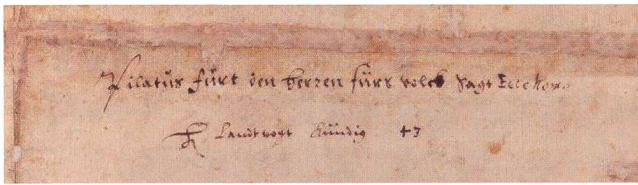 Pilatus fürt den herren fürs volck sagt Ecce homo
H Landtvogt Kündig 43